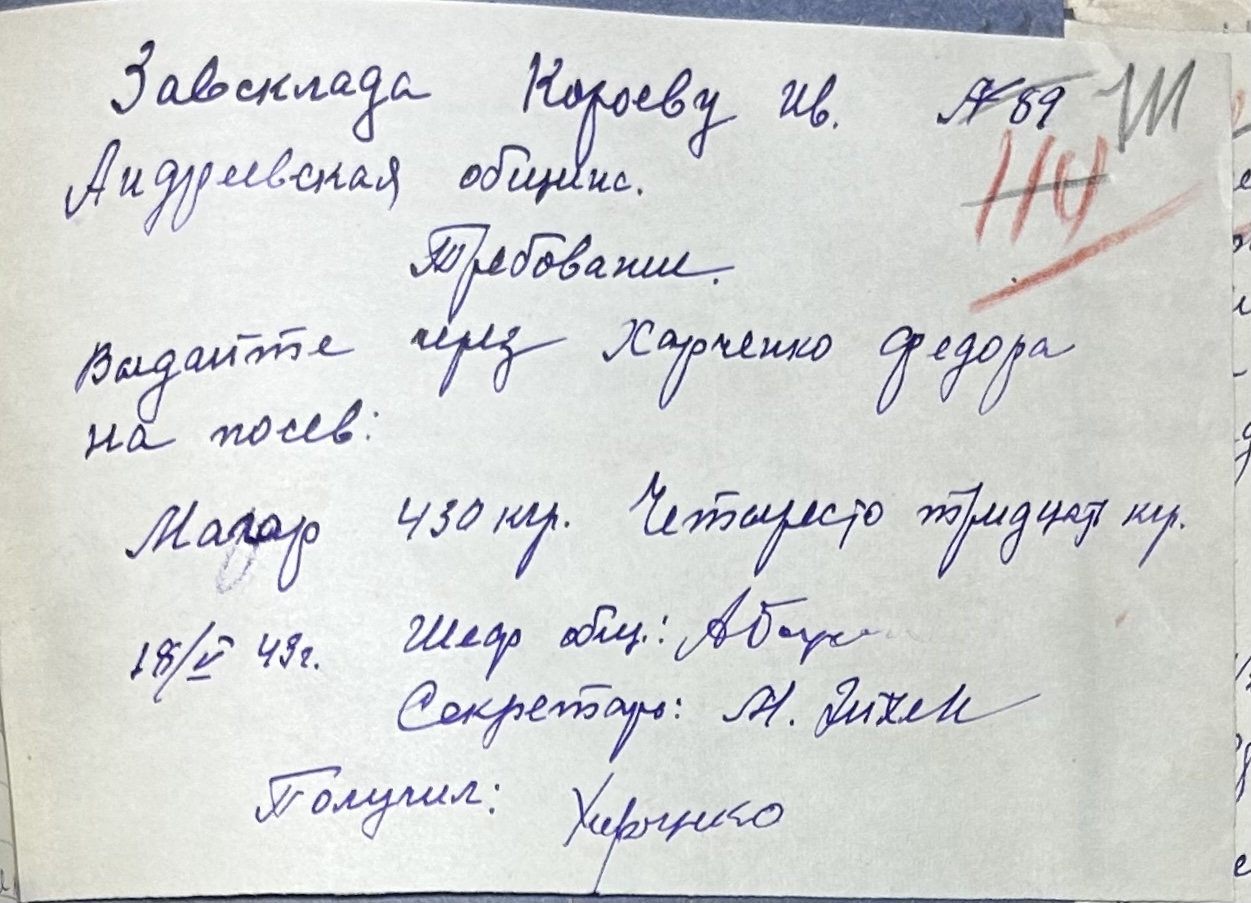 Завсклада Короеву Ив. № 89 111
Андреевская общинс. 110
Требование.
Выдайте через Харченко Федора
на посев:
Магар 430 кгр. Четыресто тридцать кгр.
18/V 43г. Шеф общ.:
Секретарь: М.
Получил: Харченко